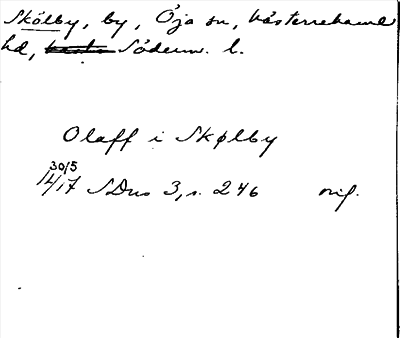 Skölby, by, Öja sn, Västerrekarne
hd, Söderm. l.
Olaff i Skølby
30/5
1417 SDns 3, s. 246 orig.